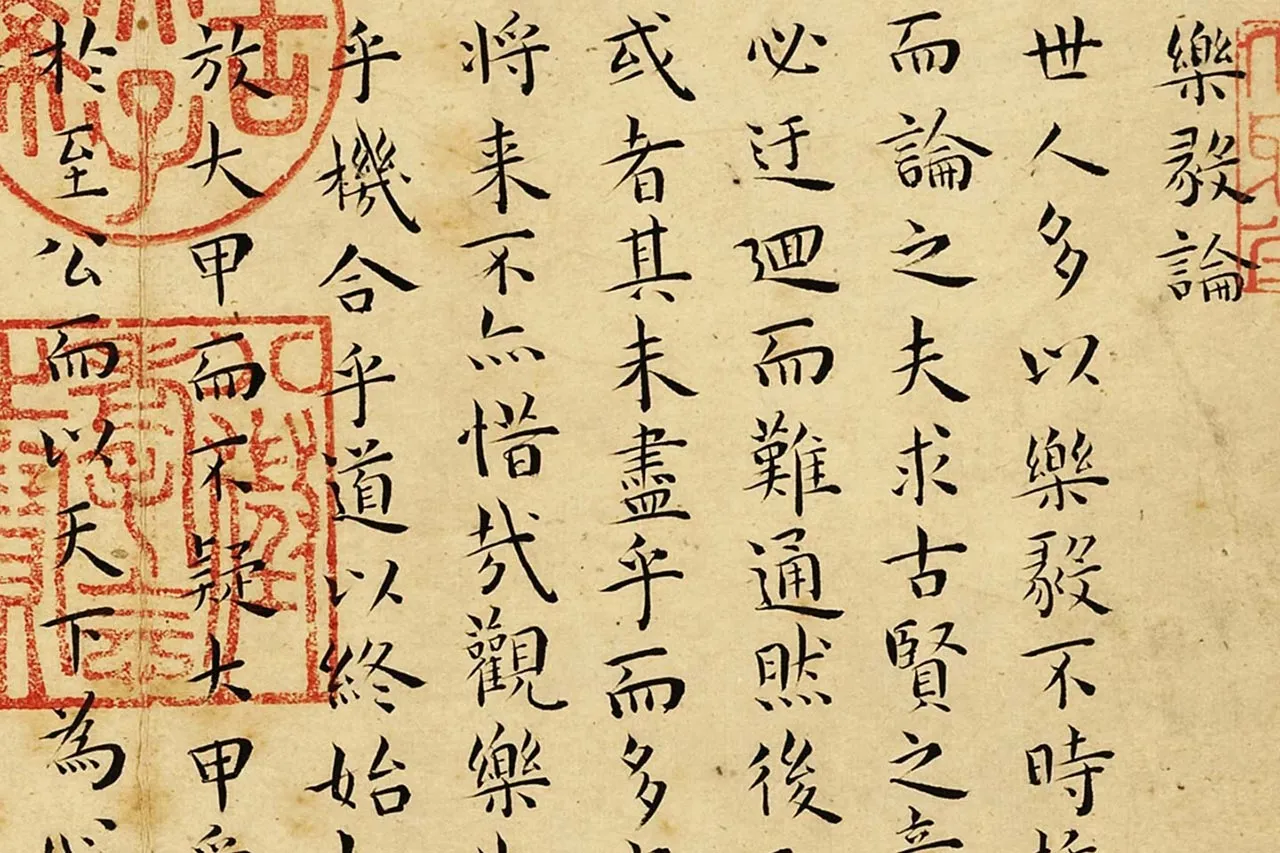 樂毅論
世人多以樂毅不時
而論之夫求古賢之
必迂迴而難通然後
或者其未盡乎而多
将来不亦惜哉觀樂
乎機合乎道以終始
放大甲而不疑大甲
於至公而以天下為